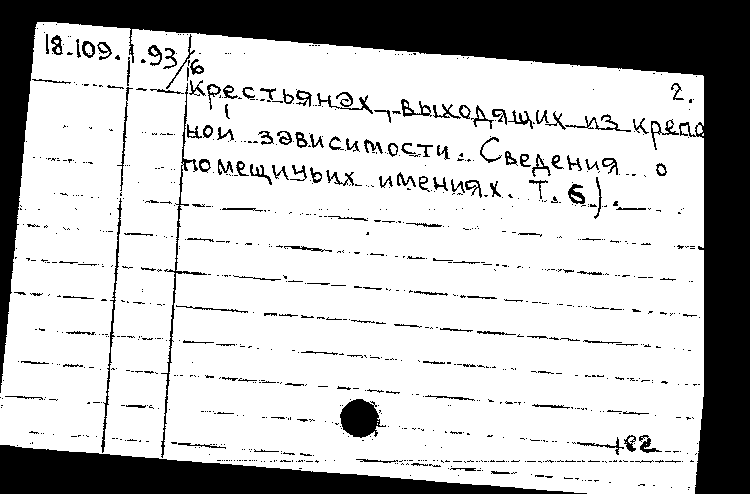 18.109.1.93/6
2.
крестьянах, выходящих из крепо
ной зависимости. Сведения о
помещичьих имениях. Т. 6).
182